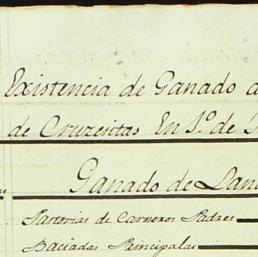 Existencia de Ganado
de Cruzesitas En 1º de
Ganado de Lana
Pastorias de Carneros Padres
Baciadas Principales